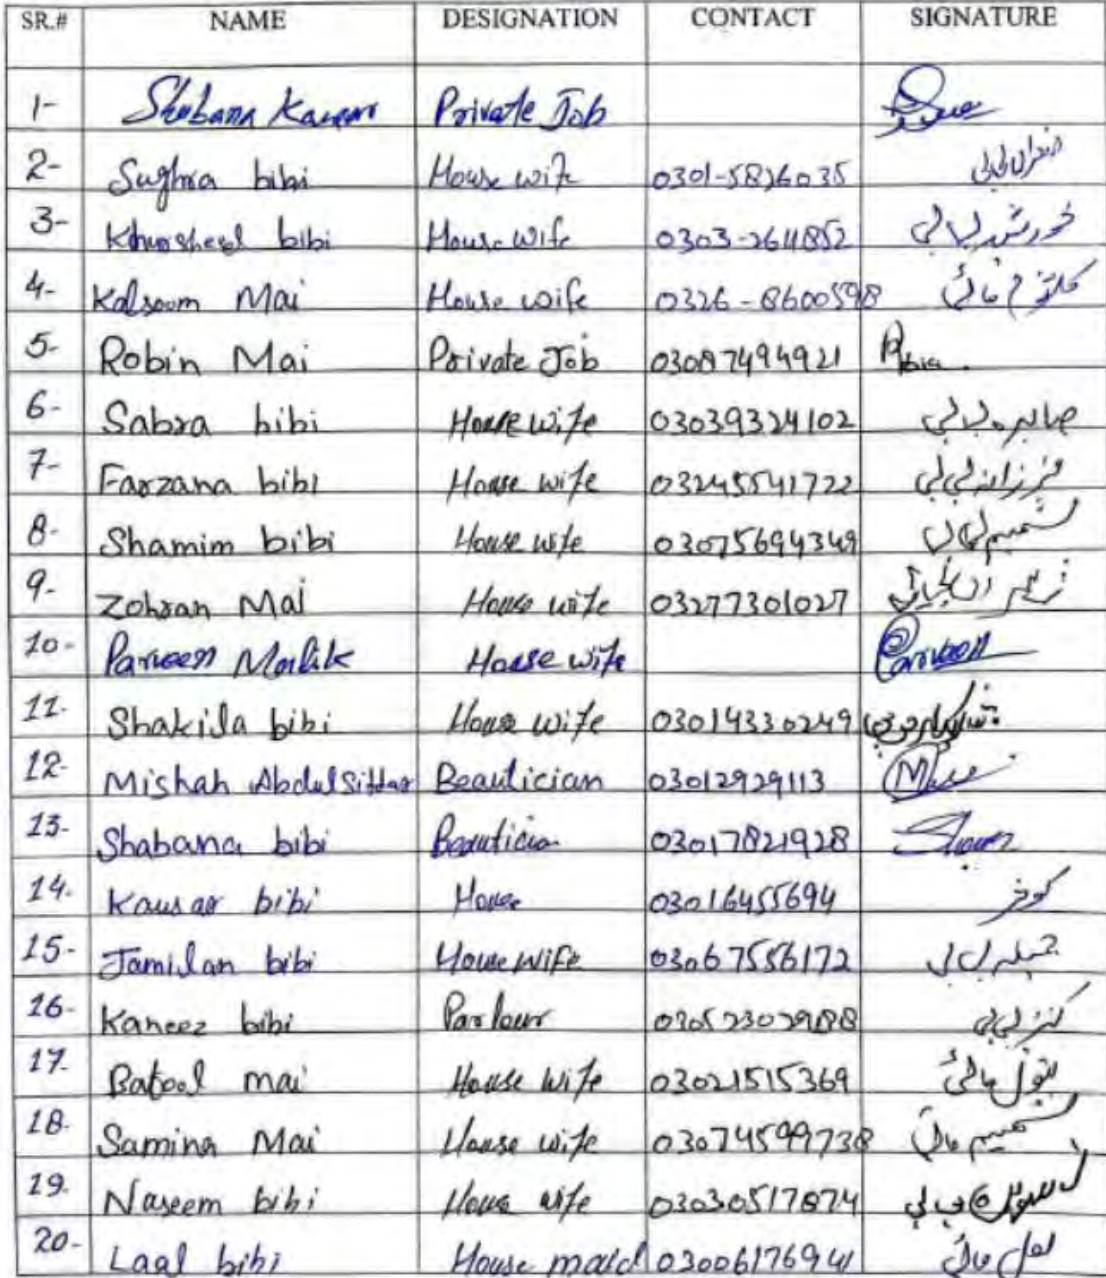 SR.# NAME DESIGNATION CONTACT SIGNATURE
1- Shabana Kausar Private Job
2- Sughra bibi House wife 0301-5826035 صغراں بی بی
3- Khursheed bibi House wife 0303-2611852 خورشید بی بی
4- Kalsoom Mai House wife 0326-8600598 کلثوم مائی
5- Robin Mai Private Job 03087494921
6- Sabra bibi House wife 03039324102 صابرہ بی بی
7- Farzana bibi House wife 03245541722 فرزانہ بی بی
8- Shamim bibi House wife 03075694349 شمیم بی بی
9- Zohran Mai House wife 03277301027
10- Parveen Malik House wife Parveen
11- Shakila bibi House wife 03014330249
12- Mishah Abdul Sittar Beautician 03012929113
13- Shabana bibi Beautician 03017821928
14- Kausar bibi House 03016455694 کوثر
15- Jamilan bibi House wife 03067556172
16- Kaneez bibi Parlour کنیز بی بی
17- Batool mai House wife 03021515369 بتول مائی
18- Samina Mai House wife 03074599738
19- Naseem bibi House wife 03030517874
20- Laal bibi House maid 03006176941 لعل مائی